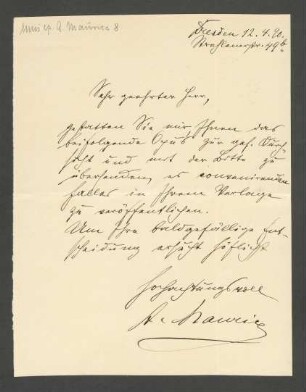 Dresden 12.4.90.
Sehr geehrter Herr,
gestatten Sie mir Ihnen das
beifolgende Opus zur gef. Durch-
sicht und mit der Bitte zu
übersenden, es convenirenden
Falles in Ihrem Verlage
zu veröffentlichen.
Um Ihre baldgefällige Ent-
scheidung ersucht höflichst
hochachtungsvoll
A. Maurice